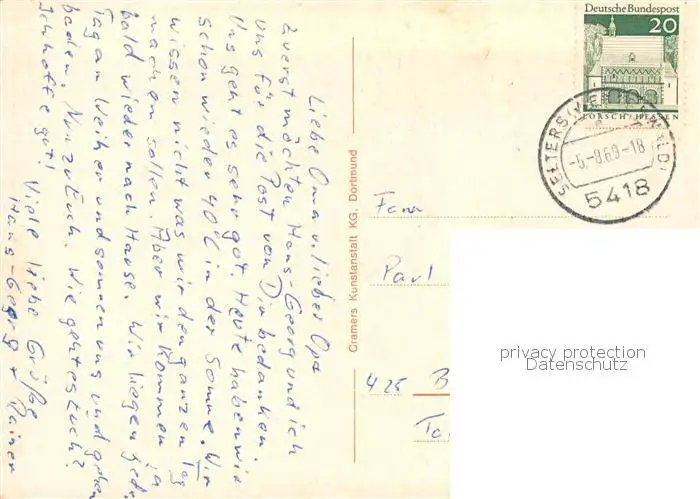 Liebe Oma u. lieber Opa
Zuerst möchten Hans-Georg und ich
uns für die Post von Dir bedanken.
Uns geht es sehr gut. Heute haben wir
schon wieder 40°C in der Sonne. Wir
wissen nicht was wir den ganzen Tag
machen sollen. Aber wir kommen ja
bald wieder nach Hause. Wir liegen jede
Tag am Weiher und sonnen uns und gehen
baden. Nun zu Euch. Wie geht es Euch?
Ich hoffe gut!
Viele liebe Grüße
Hans-Georg + Rainer
Cramers Kunstanstalt KG. Dortmund
Deutsche Bundespost
20
LORSCH/HESSEN
SELTERS
-5.-8.69-18
5418
Fam
Paul
425 B
privacy protection
Datenschutz